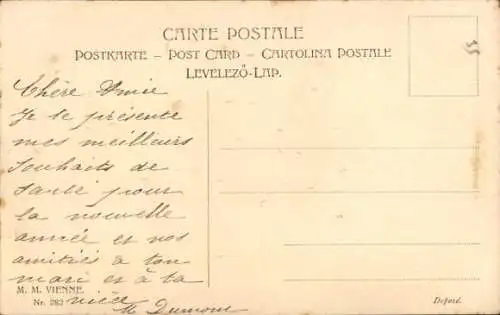 CARTE POSTALE
POSTKARTE – POST CARD – CARTOLINA POSTALE
LEVELEZŐ-LAP.
Chère Amie
Je te présente
mes meilleurs
souhaits de
santé pour
la nouvelle
année et nos
amitiés à ton
mari et à ta
nièce
M. M. VIENNE
Nr. 282
M Dumont
Déposé.